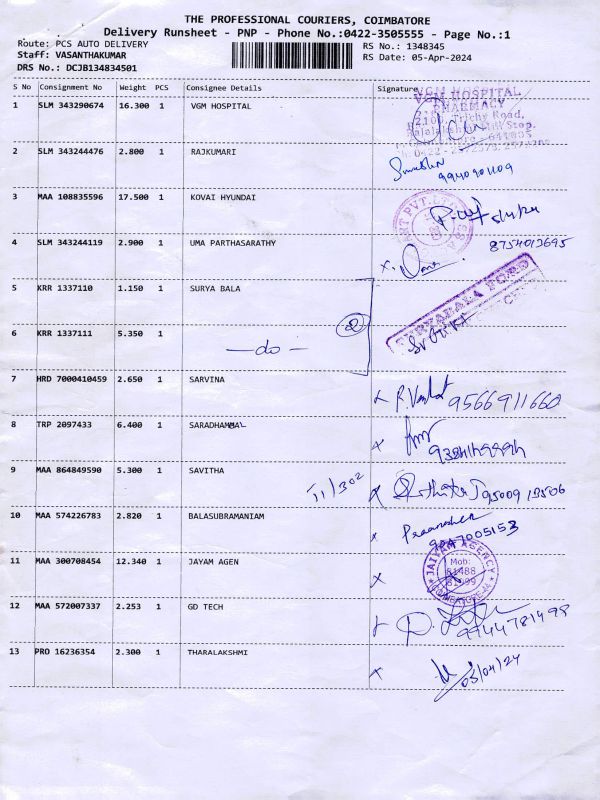 THE PROFESSIONAL COURIERS, COIMBATORE
Delivery Runsheet - PNP - Phone No.:0422-3505555 - Page No.:1
Route: PCS AUTO DELIVERY
Staff: VASANTHAKUMAR
DRS No.: DCJB134834501
RS No.: 1348345
RS Date: 05-Apr-2024
S No Consignment No Weight PCS Consignee Details Signature
1 SLM 343290674 16.300 1 VGM HOSPITAL
VGM HOSPITAL
PHARMACY
Trichy Road,
2 SLM 343244476 2.800 1 RAJKUMARI
9940901109
3 MAA 108835596 17.500 1 KOVAI HYUNDAI
4 SLM 343244119 2.900 1 UMA PARTHASARATHY
8754013695
5 KRR 1337110 1.150 1 SURYA BALA
SURYABALA FORD
6 KRR 1337111 5.350 1 — do —
2
7 HRD 7000410459 2.650 1 SARVINA
R. Venkat 9566911660
8 TRP 2097433 6.400 1 SARADHAMMAL
9 MAA 864849590 5.300 1 SAVITHA
11/302
9500913506
10 MAA 574226783 2.820 1 BALASUBRAMANIAM
11 MAA 300708454 12.340 1 JAYAM AGEN
JAIYAM AGENCY
Mob:
81488
12 MAA 572007337 2.253 1 GD TECH
9944781498
13 PRO 16236354 2.300 1 THARALAKSHMI
05/04/24